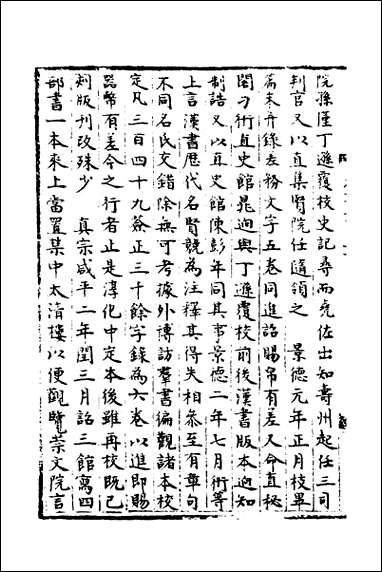 院孫僅丁遜覆校史記尋而堯佐出知壽州起任三司
判官又以直集賢院任隨領之　景德元年正月校畢
篇末升錄差務文字五卷同進詔賜帛有差又命直秘
閣刁衎直史館晁迥與丁遜覆校前後漢書版本迥知
制誥又以直史館陳彭年同其事景德二年七月衎等
上言漢書歷代名賢競為注釋其得失相參至有章句
不同名氏交錯除無可考據外博訪羣書徧觀諸本校
定凡三百四十九簽正三十餘字錄為六卷以進即賜
器幣有差今之行者止是淳化中定本後雖再校既已
刻版刊改殊少　真宗咸平二年閏三月詔三館寫四
部書一本來上當置禁中太清樓以便觀覽崇文院言